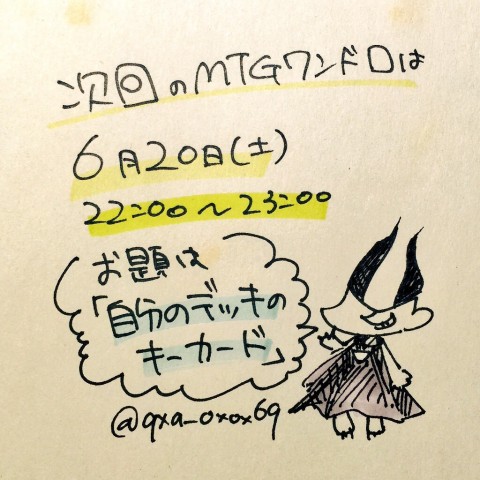 次回のMTGワンドロは
6月20日(土)
22:00〜23:00
お題は
「自分のデッキの
キーカード」
@qxa_oxox69